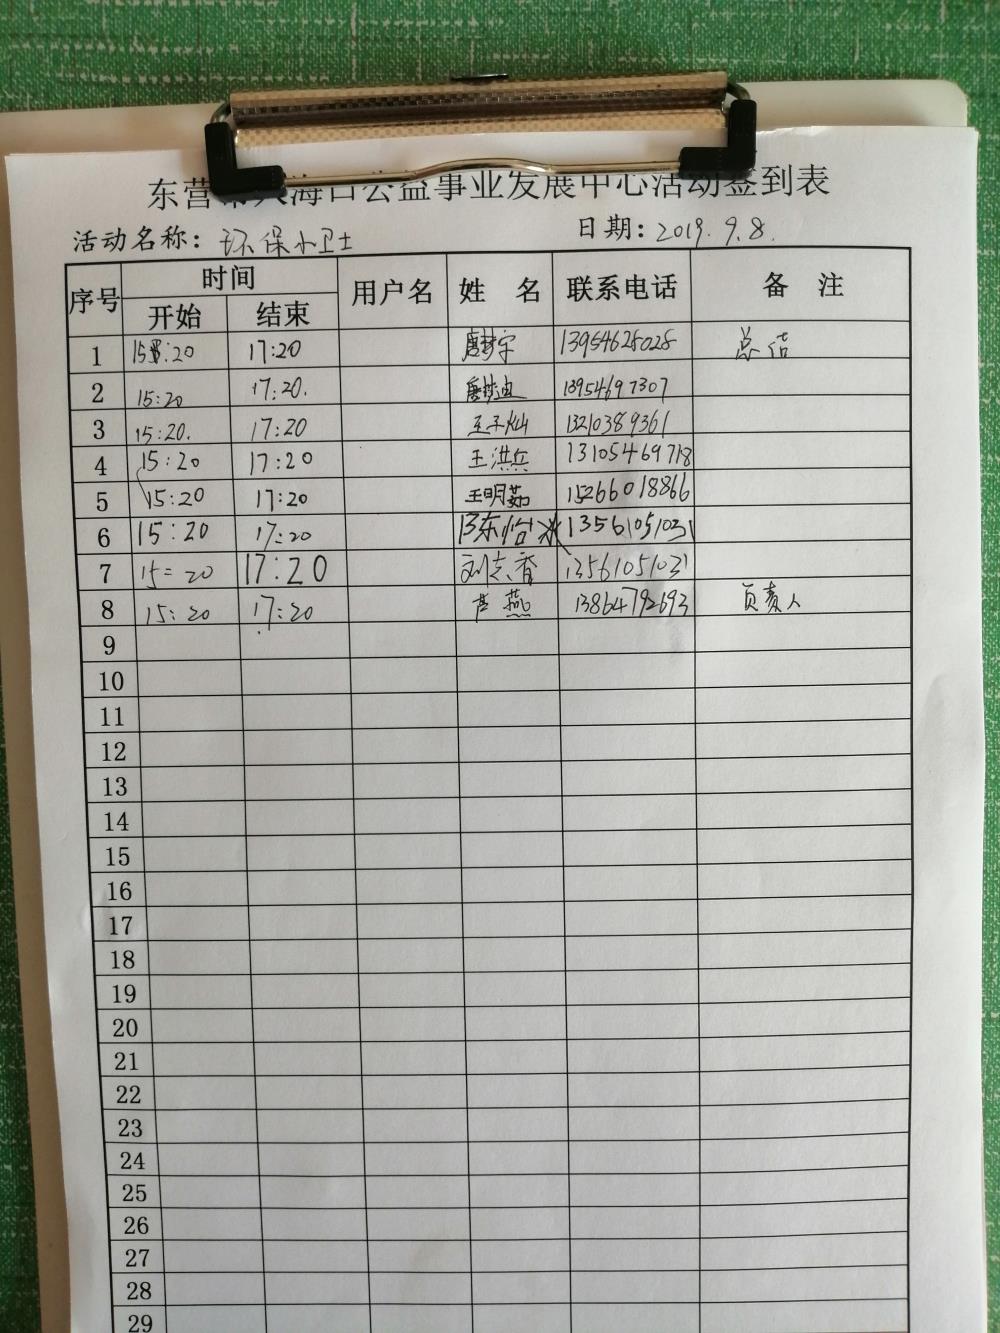 东营 海口公益事业发展中心活动签到表
活动名称： 环保小卫士 日期：2019.9.8.
序号 时间 用户名 姓 名 联系电话 备 注
开始 结束
1 15:20 17:20 13954628028 总结
2 15:20 17:20. 13954697307
3 15:20. 17:20 王子灿 13210389361
4 15:20 17:20 王洪兵 13105469718
5 15:20 17:20 王明茹 15266018866
6 15:20 17:20 13561051031
7 15:20 17:20 刘志香 13561051031
8 15:20 17:20 芦燕 13864792693 负责人
9
10
11
12
13
14
15
16
17
18
19
20
21
22
23
24
25
26
27
28
29